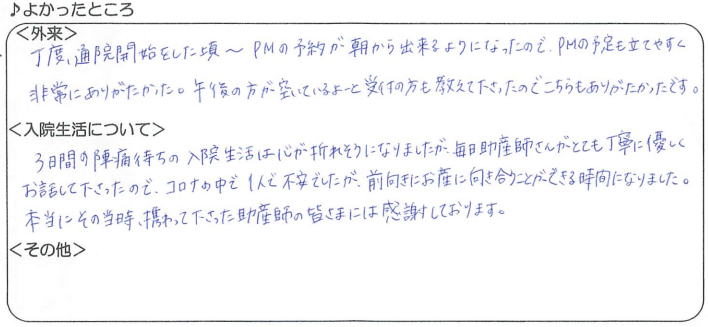 ♪よかったところ
＜外来＞
丁度、通院開始をした頃～PMの予約が朝から出来るようになったので、PMの予定も立てやすく
非常にありがたかった。午後の方が空いているよーと受付の方も教えて下さったのでこちらもありがたかったです。
＜入院生活について＞
3日間の陣痛待ちの入院生活は心が折れそうになりましたが、毎日助産師さんがとても丁寧に優しく
お話して下さったので、コロナの中で1人で不安でしたが、前向きにお産に向き合うことができる時間になりました。
本当にその当時、携わって下さった助産師の皆さまには感謝しております。
＜その他＞